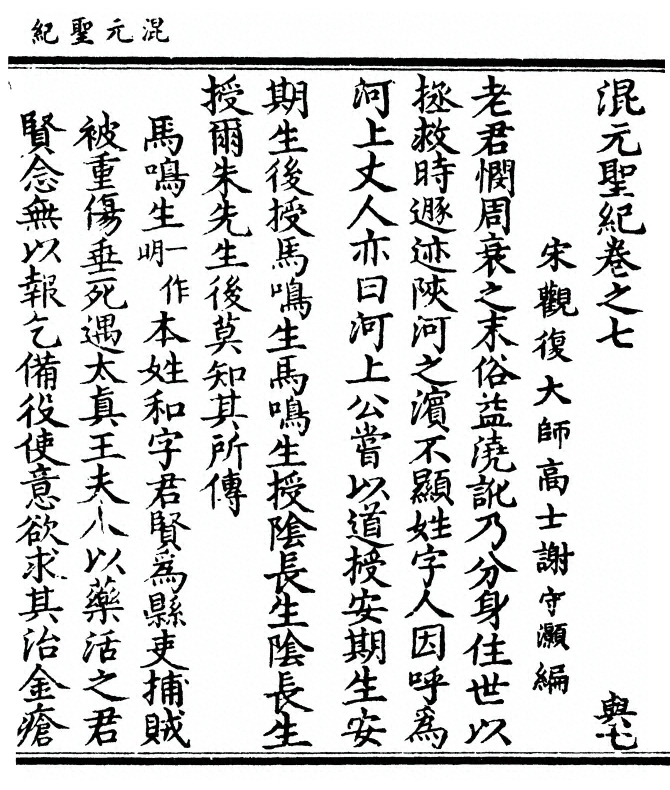 混元聖紀
混元聖紀卷之七 與七
宋觀復大師高士謝守灝編
老君憫周衰之末俗益澆訛乃分身住世以
拯救時遯迹陝河之濱不顯姓字人因呼爲
河上丈人亦曰河上公嘗以道授安期生安
期生後授馬鳴生馬鳴生授陰長生陰長生
授爾朱先生後莫知其所傳
馬鳴生一作明本姓和字君賢爲縣吏捕賊
被重傷垂死遇太真王夫人以藥活之君
賢念無以報乞備役使意欲求其治金瘡